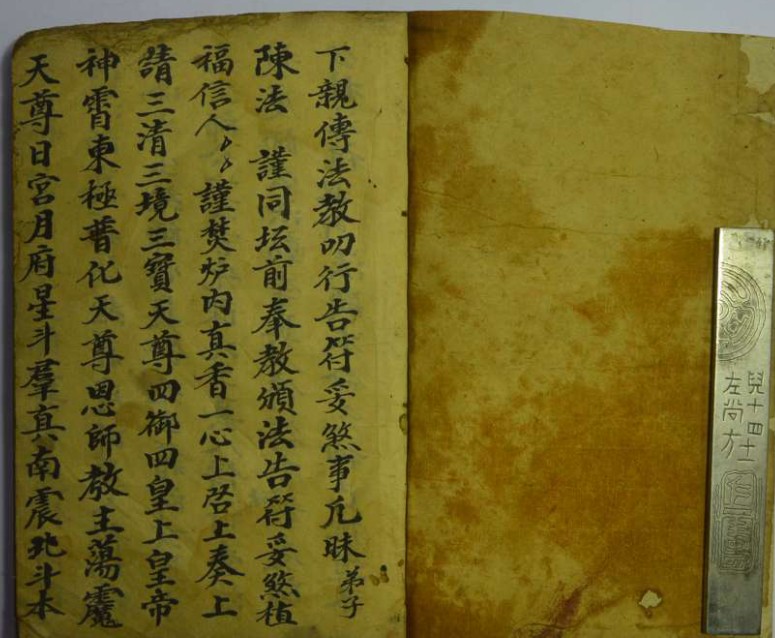 下親傳法教叨行告符妥煞事凡昧弟子
陳法 謹同坛前奉教頒法告符妥煞植
福信人〻謹焚炉内真香一心上启上奏上
請三清三境三寶天尊四御四皇上皇帝
神霄東極普化天尊恩師教主蕩魔
天尊日宫月府星斗羣真南震北斗本
左尚方